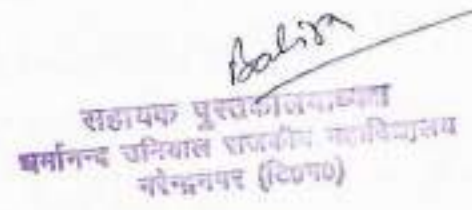 सहायक पुस्तकालयाध्यक्ष
धर्मानन्द उनियाल राजकीय महाविद्यालय
नरेन्द्रनगर (टि०ग०)